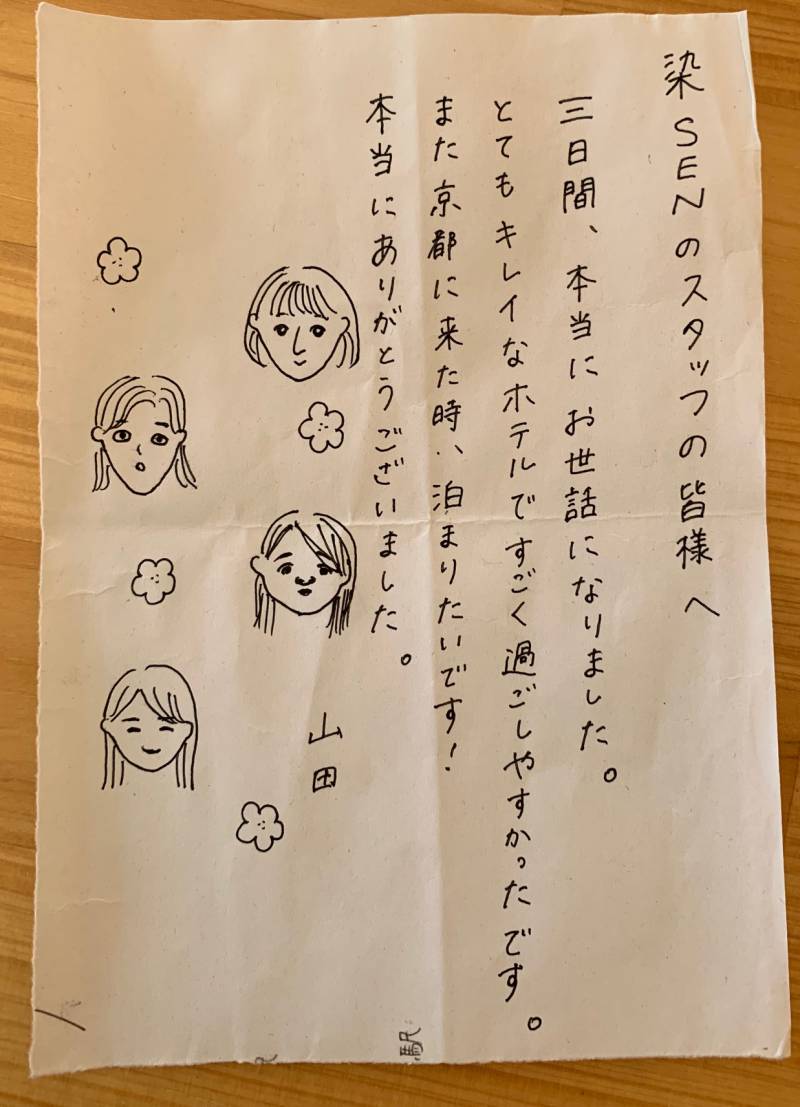 染SENのスタッフの皆様へ
三日間、本当にお世話になりました。
とてもキレイなホテルですごく過ごしやすかったです。
また京都に来た時、泊まりたいです！
本当にありがとうございました。
山田
駅